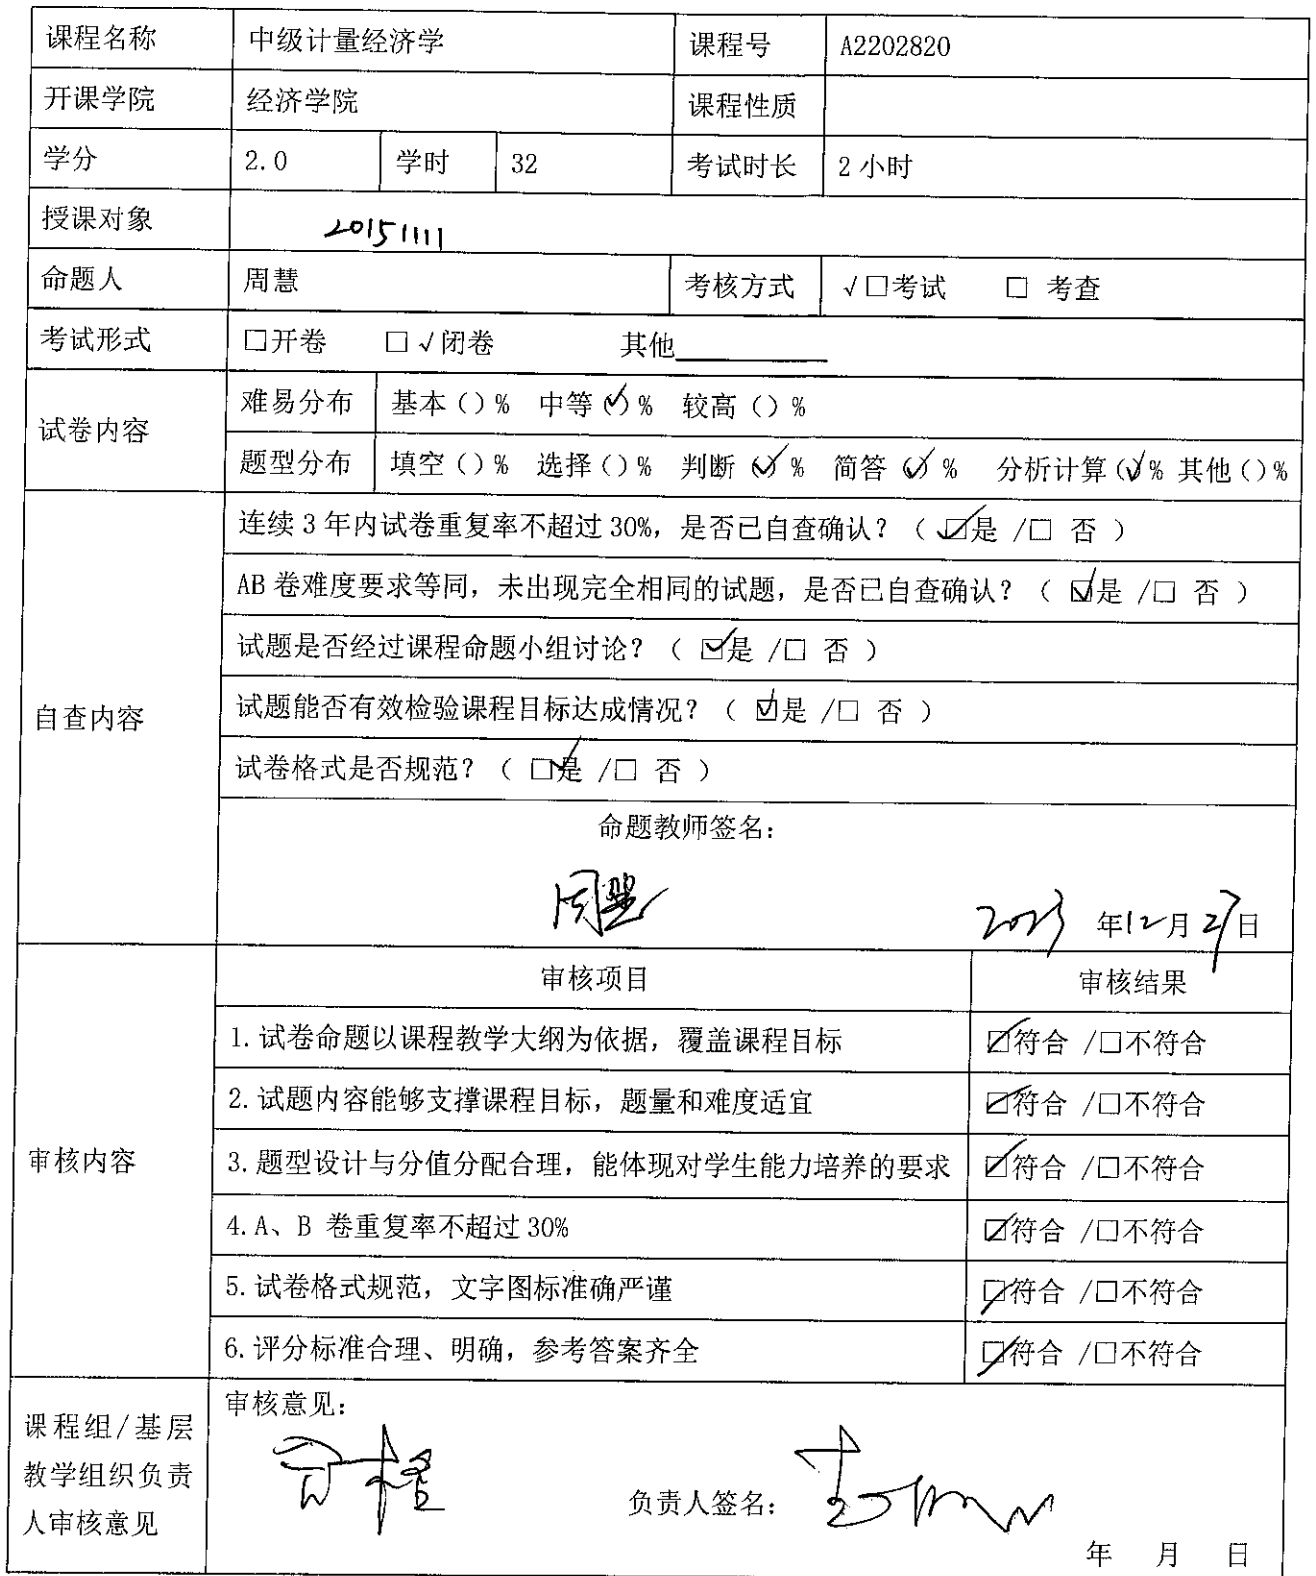 课程名称 中级计量经济学 课程号 A2202820
开课学院 经济学院 课程性质
学分 2.0 学时 32 考试时长 2 小时
授课对象 20151111
命题人 周慧 考核方式 √□考试 □ 考查
考试形式 □开卷 □√闭卷 其他________
试卷内容
难易分布 基本()% 中等(✓)% 较高()%
题型分布 填空()% 选择()% 判断(✓)% 简答(✓)% 分析计算(✓)% 其他()%
自查内容
连续3年内试卷重复率不超过30%，是否已自查确认？（ ☑是 /□ 否 ）
AB卷难度要求等同，未出现完全相同的试题，是否已自查确认？（ ☑是 /□ 否 ）
试题是否经过课程命题小组讨论？（ ☑是 /□ 否 ）
试题能否有效检验课程目标达成情况？（ ☑是 /□ 否 ）
试卷格式是否规范？（ ☑是 /□ 否 ）
命题教师签名：
周慧 2023 年12月27日
审核内容
审核项目 审核结果
1.试卷命题以课程教学大纲为依据，覆盖课程目标 ☑符合 /□不符合
2.试题内容能够支撑课程目标，题量和难度适宜 ☑符合 /□不符合
3.题型设计与分值分配合理，能体现对学生能力培养的要求 ☑符合 /□不符合
4.A、B 卷重复率不超过30% ☑符合 /□不符合
5.试卷格式规范，文字图标准确严谨 ☑符合 /□不符合
6.评分标准合理、明确，参考答案齐全 ☑符合 /□不符合
课程组/基层
教学组织负责
人审核意见
审核意见：
负责人签名：
年 月 日